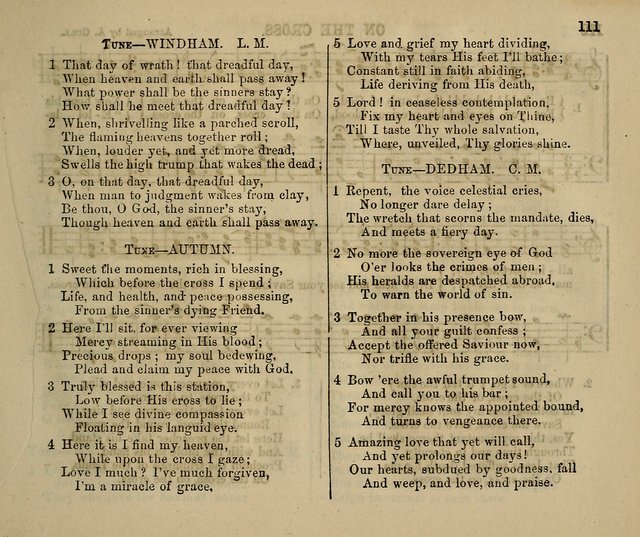 111
Tune—WINDHAM. L. M.
1 That day of wrath! that dreadful day,
When heaven and earth shall pass away!
What power shall be the sinners stay?
How shall he meet that dreadful day!
2 When, shrivelling like a parched scroll,
The flaming heavens together roll;
When, louder yet, and yet more dread,
Swells the high trump that wakes the dead;
3 O, on that day, that dreadful day,
When man to judgment wakes from clay,
Be thou, O God, the sinner's stay,
Though heaven and earth shall pass away.
Tune—AUTUMN.
1 Sweet the moments, rich in blessing,
Which before the cross I spend;
Life, and health, and peace possessing,
From the sinner's dying Friend.
2 Here I'll sit, for ever viewing
Mercy streaming in His blood;
Precious drops; my soul bedewing,
Plead and claim my peace with God.
3 Truly blessed is this station,
Low before His cross to lie;
While I see divine compassion
Floating in his languid eye.
4 Here it is I find my heaven,
While upon the cross I gaze;
Love I much? I've much forgiven,
I'm a miracle of grace.
5 Love and grief my heart dividing,
With my tears His feet I'll bathe;
Constant still in faith abiding,
Life deriving from His death,
5 Lord! in ceaseless contemplation,
Fix my heart and eyes on Thine,
Till I taste Thy whole salvation,
Where, unveiled, Thy glories shine.
Tune—DEDHAM. C. M.
1 Repent, the voice celestial cries,
No longer dare delay;
The wretch that scorns the mandate, dies,
And meets a fiery day.
2 No more the sovereign eye of God
O'er looks the crimes of men;
His heralds are despatched abroad,
To warn the world of sin.
3 Together in his presence bow,
And all your guilt confess;
Accept the offered Saviour now,
Nor trifle with his grace.
4 Bow 'ere the awful trumpet sound,
And call you to his bar;
For mercy knows the appointed bound,
And turns to vengeance there.
5 Amazing love that yet will call,
And yet prolongs our days!
Our hearts, subdued by goodness, fall
And weep, and love, and praise.